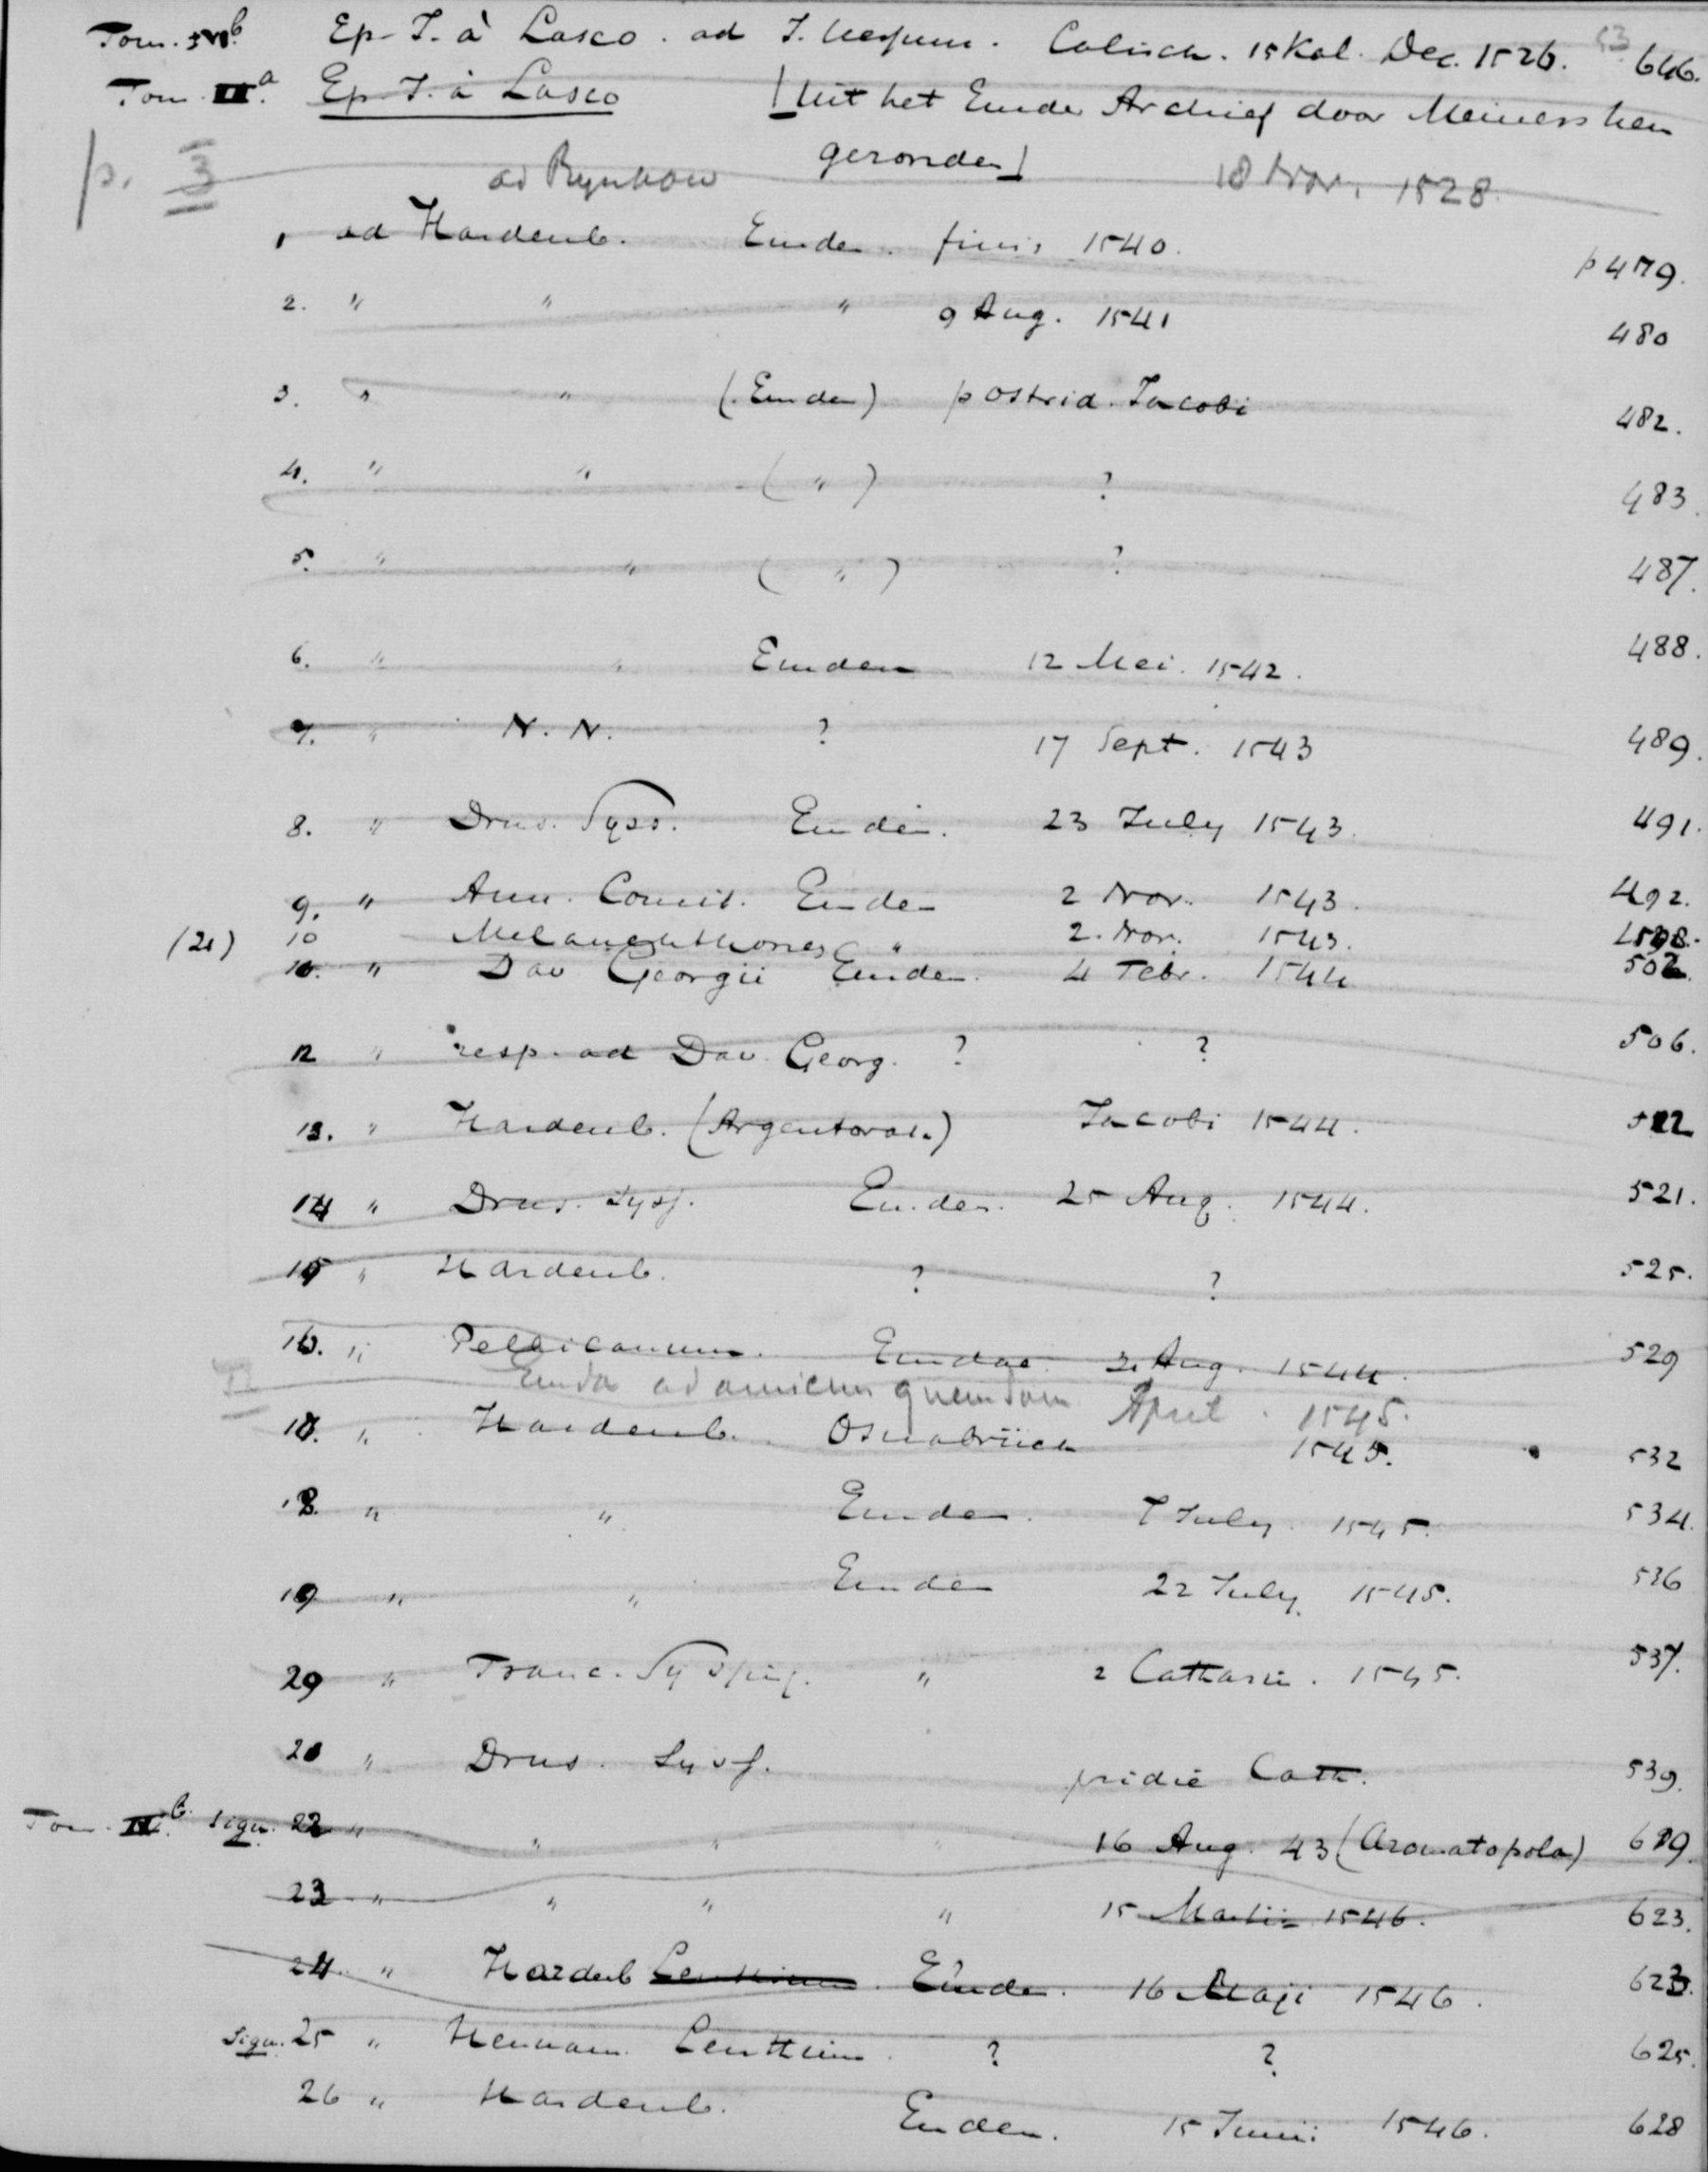 Ep. J. à Lasco. ad J. Calisch. 15 Kal. Dec. 1526. 53 646.
Tom. IIa Ep. J. à Lasco [Uit het Emder Archief door Meiners hen
p. 3 gevonden]
ad Rynkow 18 Nov. 1528
1 ad Hardenb. Emden. finis 1540. p 479.
2. " " " 9 Aug. 1541 480
3. " " (Emden) postrid. Jacobi 482.
4. " " ( " ) ? 483.
5. " " ( " ) ? 487.
6. " " Emden 12 Mei. 1542. 488.
7. " N. N. ? 17 Sept. 1543 489.
8. " Drus. Syss. Emden. 23 July 1543. 491.
9. " Ann. Comit. Emden 2 Nov. 1543. 492.
(21) 10 Melanchthones " 2. Nov. 1543.
" Dav Georgii Emden. 4 Febr. 1544 502
12 " resp. ad Dav. Georg. ? ? 506.
13. " Hardenb. (Argentorat.) Jacobi 1544. 522
14 " Drus. Sysf. Emden. 25 Aug. 1544. 521.
15 " Hardenb. ? ? 525.
16. " Pellicanum. Emdae. 31 Aug. 1544. 529
Emda ad amicum quemdam April. 1545.
18. " Hardenb. Osnabrück 1545. 532
18. " " Emden. 7 July. 1545. 534.
19 " " Emden 22 July. 1545. 536
20 " Franc. " 2 Catharin. 1545. 537.
20 " Drus. Sysf. pridie Cath. 539.
Tom. IIb. Sign. 22 " " " " 16 Aug. 43 (Aromatopola) 619.
23 " " " " 15 Martii 1546. 623.
24 " Hardenb Lenthium. Emden. 16 Maji 1546. 623.
Sign. 25 " Hermann. Lenthium. ? ? 625.
26 " Hardenb. Emden. 15 Junii 1546. 628